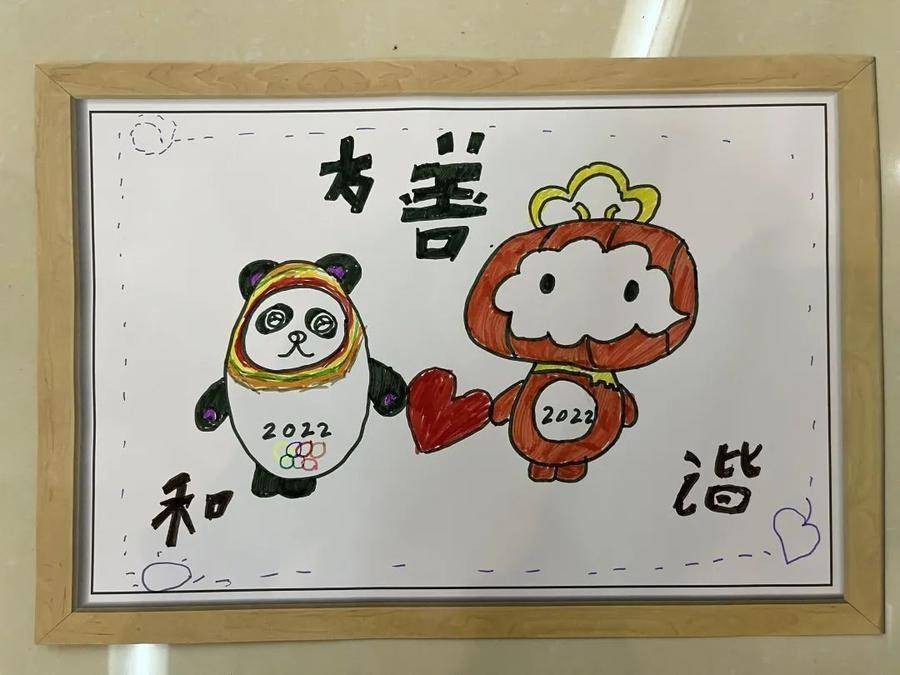 善
2022
2022
和
谐